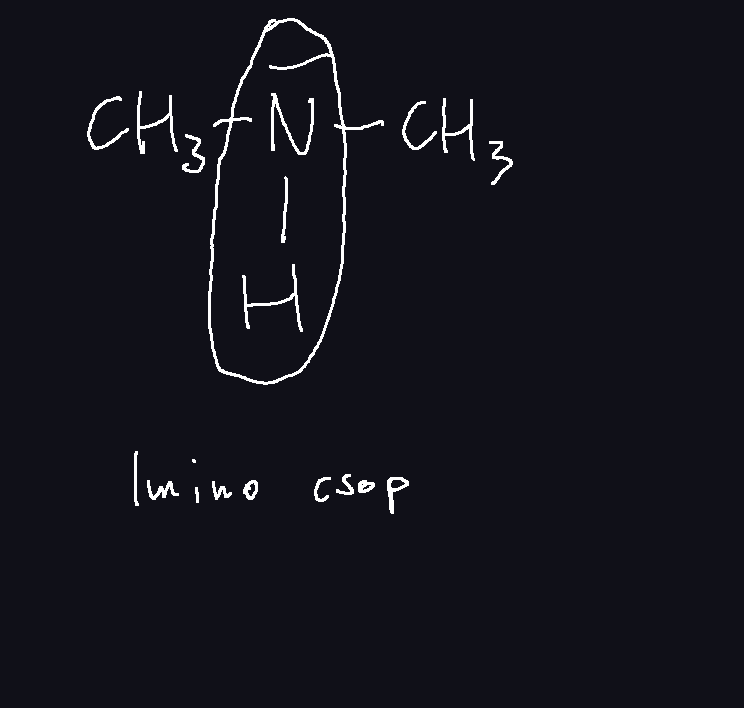 CH₃-N-CH₃
|
H
Imino csop